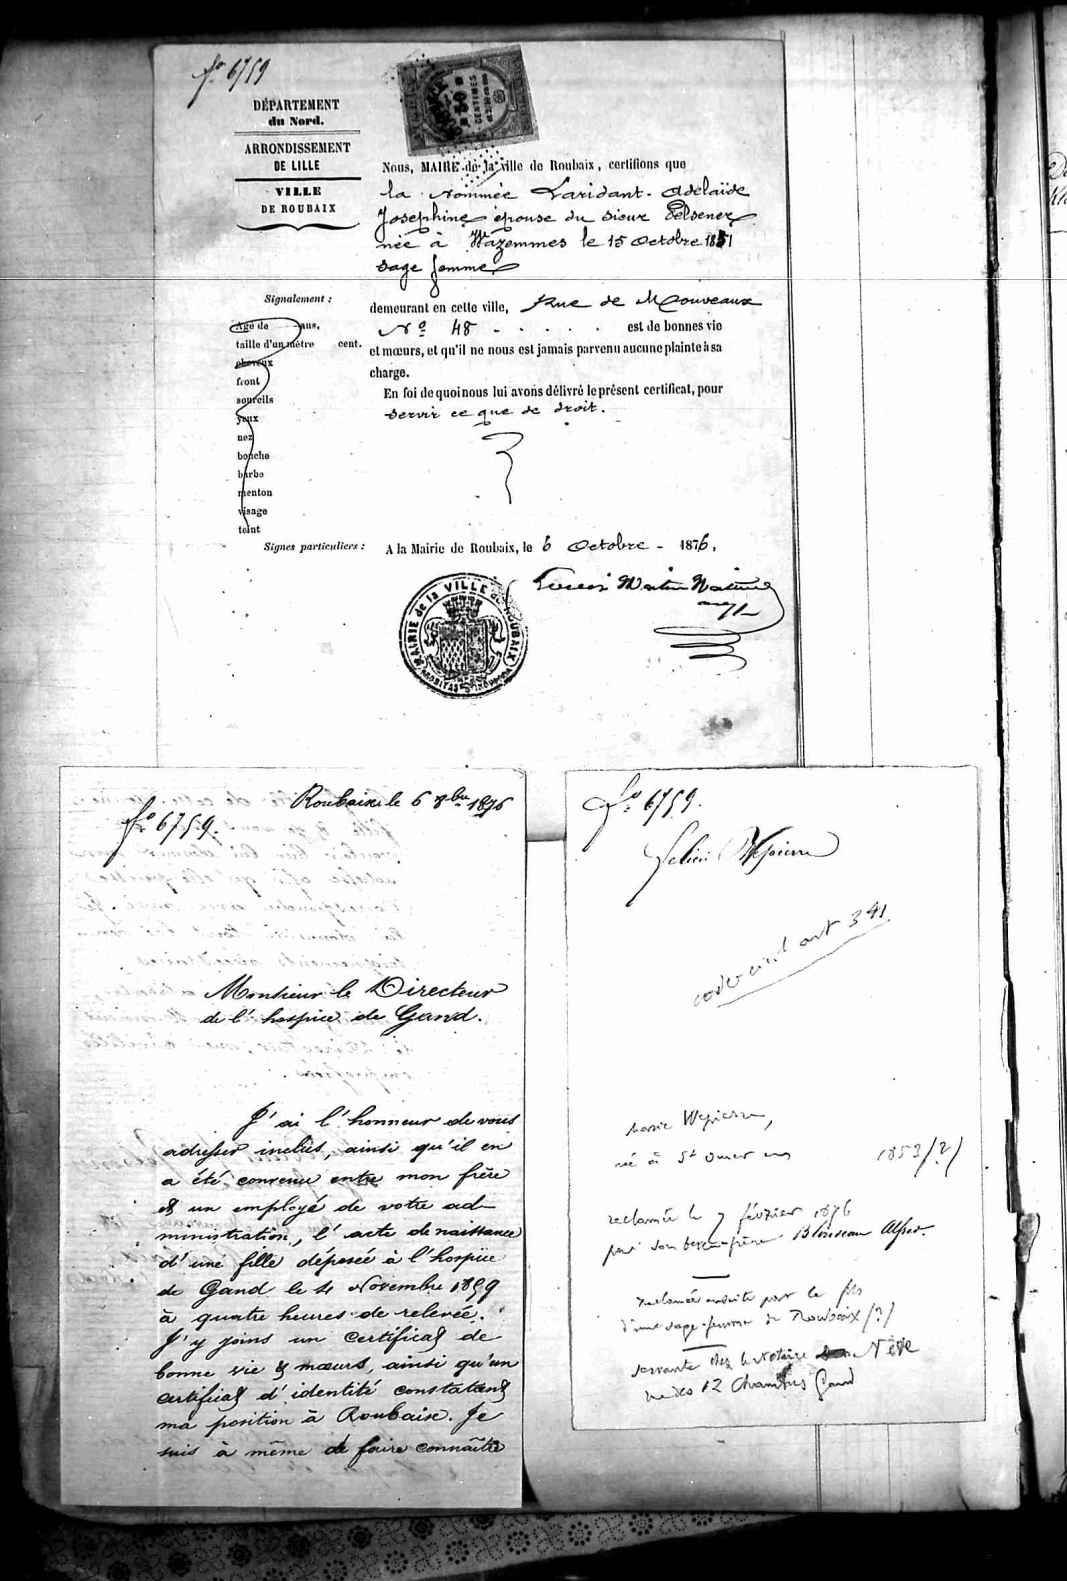 fo 6759
DÉPARTEMENT
du Nord.
ARRONDISSEMENT
DE LILLE
VILLE
DE ROUBAIX
50
CENTIMES
Nous, MAIRE de la ville de Roubaix, certifions que
la nommée Laridant Adélaïde
Josephine épouse du sieur Delsener
née à Wazemmes le 15 octobre 1851
sage femme
demeurant en cette ville, Rue de Mouveaux
No 48 est de bonnes vie
et mœurs, et qu'il ne nous est jamais parvenu aucune plainte à sa
charge.
En foi de quoi nous lui avons délivré le présent certificat, pour
servir ce que de droit.
Signalement :
Agé de ans,
taille d'un mètre cent.
cheveux
front
sourcils
yeux
nez
bouche
barbe
menton
visage
teint
Signes particuliers :
A la Mairie de Roubaix, le 6 Octobre - 1876.
MAIRIE de la VILLE de ROUBAIX
fo 6759.
Roubaix le 6 8bre 1876
Monsieur le Directeur
de l'hospice de Gand.
J'ai l'honneur de vous
adresser inclus, ainsi qu'il en
a été convenu entre mon frère
et un employé de votre ad-
ministration, l'acte de naissance
d'une fille déposée à l'hospice
de Gand le 4 Novembre 1859
à quatre heures de relevée.
J'y joins un certificat de
bonne vie & mœurs, ainsi qu'un
certificat d'identité constatant
ma position à Roubaix. Je
suis à même de faire connaître
fo 6759.
Wepierre
code civil art 341
Marie Wepierre,
née à St Omer en 1853 (?)
reclamée le 7 février 1876
par son beau-frère Alfred.
reclamée ensuite par le fils
d'une sage-femme de Roubaix (?)
servante chez le notaire Nève
rue des 12 Chambres Gand